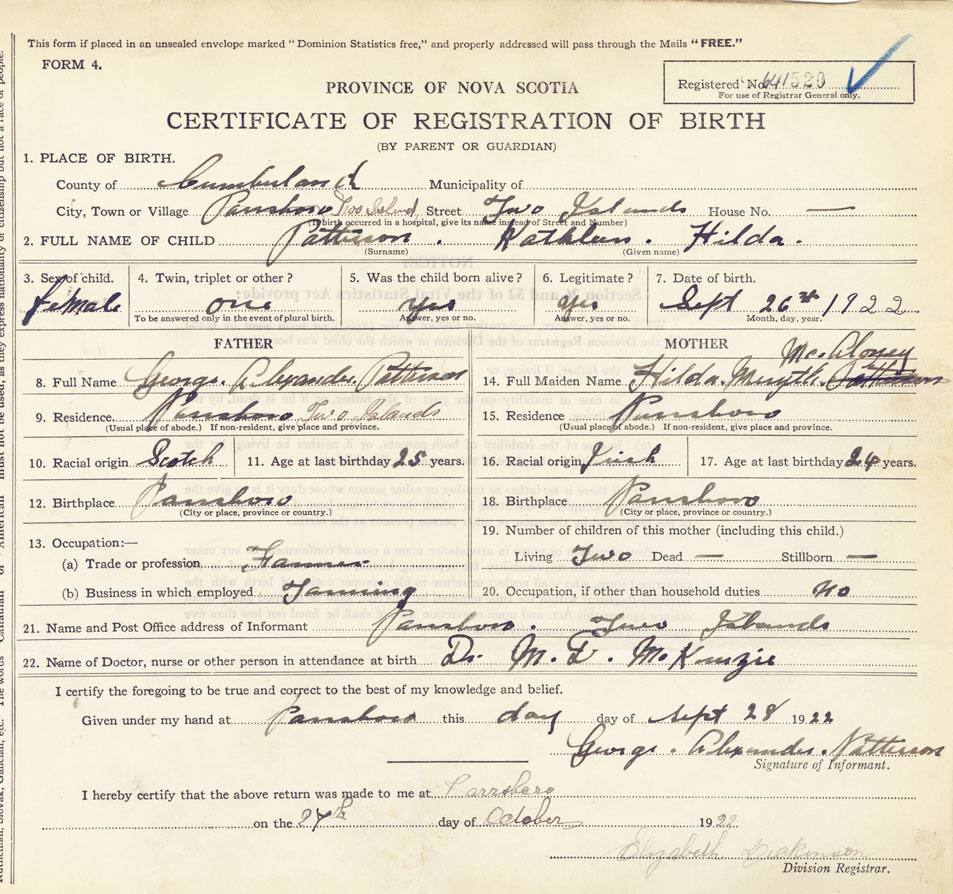 This form if placed in an unsealed envelope marked "Dominion Statistics free," and properly addressed will pass through the Mails "FREE."
FORM 4.
Registered No. 641520
For use of Registrar General only.
PROVINCE OF NOVA SCOTIA
CERTIFICATE OF REGISTRATION OF BIRTH
(BY PARENT OR GUARDIAN)
1. PLACE OF BIRTH.
County of Cumberland Municipality of
City, Town or Village Parrsboro Two Island Street Two Islands House No. —
(If birth occurred in a hospital, give its name instead of Street and Number)
2. FULL NAME OF CHILD Patterson. Kathleen. Hilda.
(Surname) (Given name)
3. Sex of child. 4. Twin, triplet or other? 5. Was the child born alive? 6. Legitimate? 7. Date of birth.
female one yes yes Sept 26th 1922
To be answered only in the event of plural birth. Answer, yes or no. Answer, yes or no. Month, day, year.
FATHER
8. Full Name George. Alexander Patterson
9. Residence Parrsboro Two Islands
(Usual place of abode.) If non-resident, give place and province.
10. Racial origin Scotch 11. Age at last birthday 25 years.
12. Birthplace Parrsboro
(City or place, province or country.)
13. Occupation:—
(a) Trade or profession Farmer
(b) Business in which employed Farming
MOTHER
Mc. Aloney
14. Full Maiden Name Hilda. Patterson
15. Residence Parrsboro
(Usual place of abode.) If non-resident, give place and province.
16. Racial origin Irish 17. Age at last birthday 24 years.
18. Birthplace Parrsboro
(City or place, province or country.)
19. Number of children of this mother (including this child.)
Living Two Dead — Stillborn —
20. Occupation, if other than household duties no
21. Name and Post Office address of Informant Parrsboro. Two Islands
22. Name of Doctor, nurse or other person in attendance at birth Dr. M. D. McKenzie
I certify the foregoing to be true and correct to the best of my knowledge and belief.
Given under my hand at Parrsboro this day day of Sept 28 1922
George. Alexander. Patterson
Signature of Informant.
I hereby certify that the above return was made to me at Parrsboro
on the day of October 1922
Elizabeth Dickinson
Division Registrar.